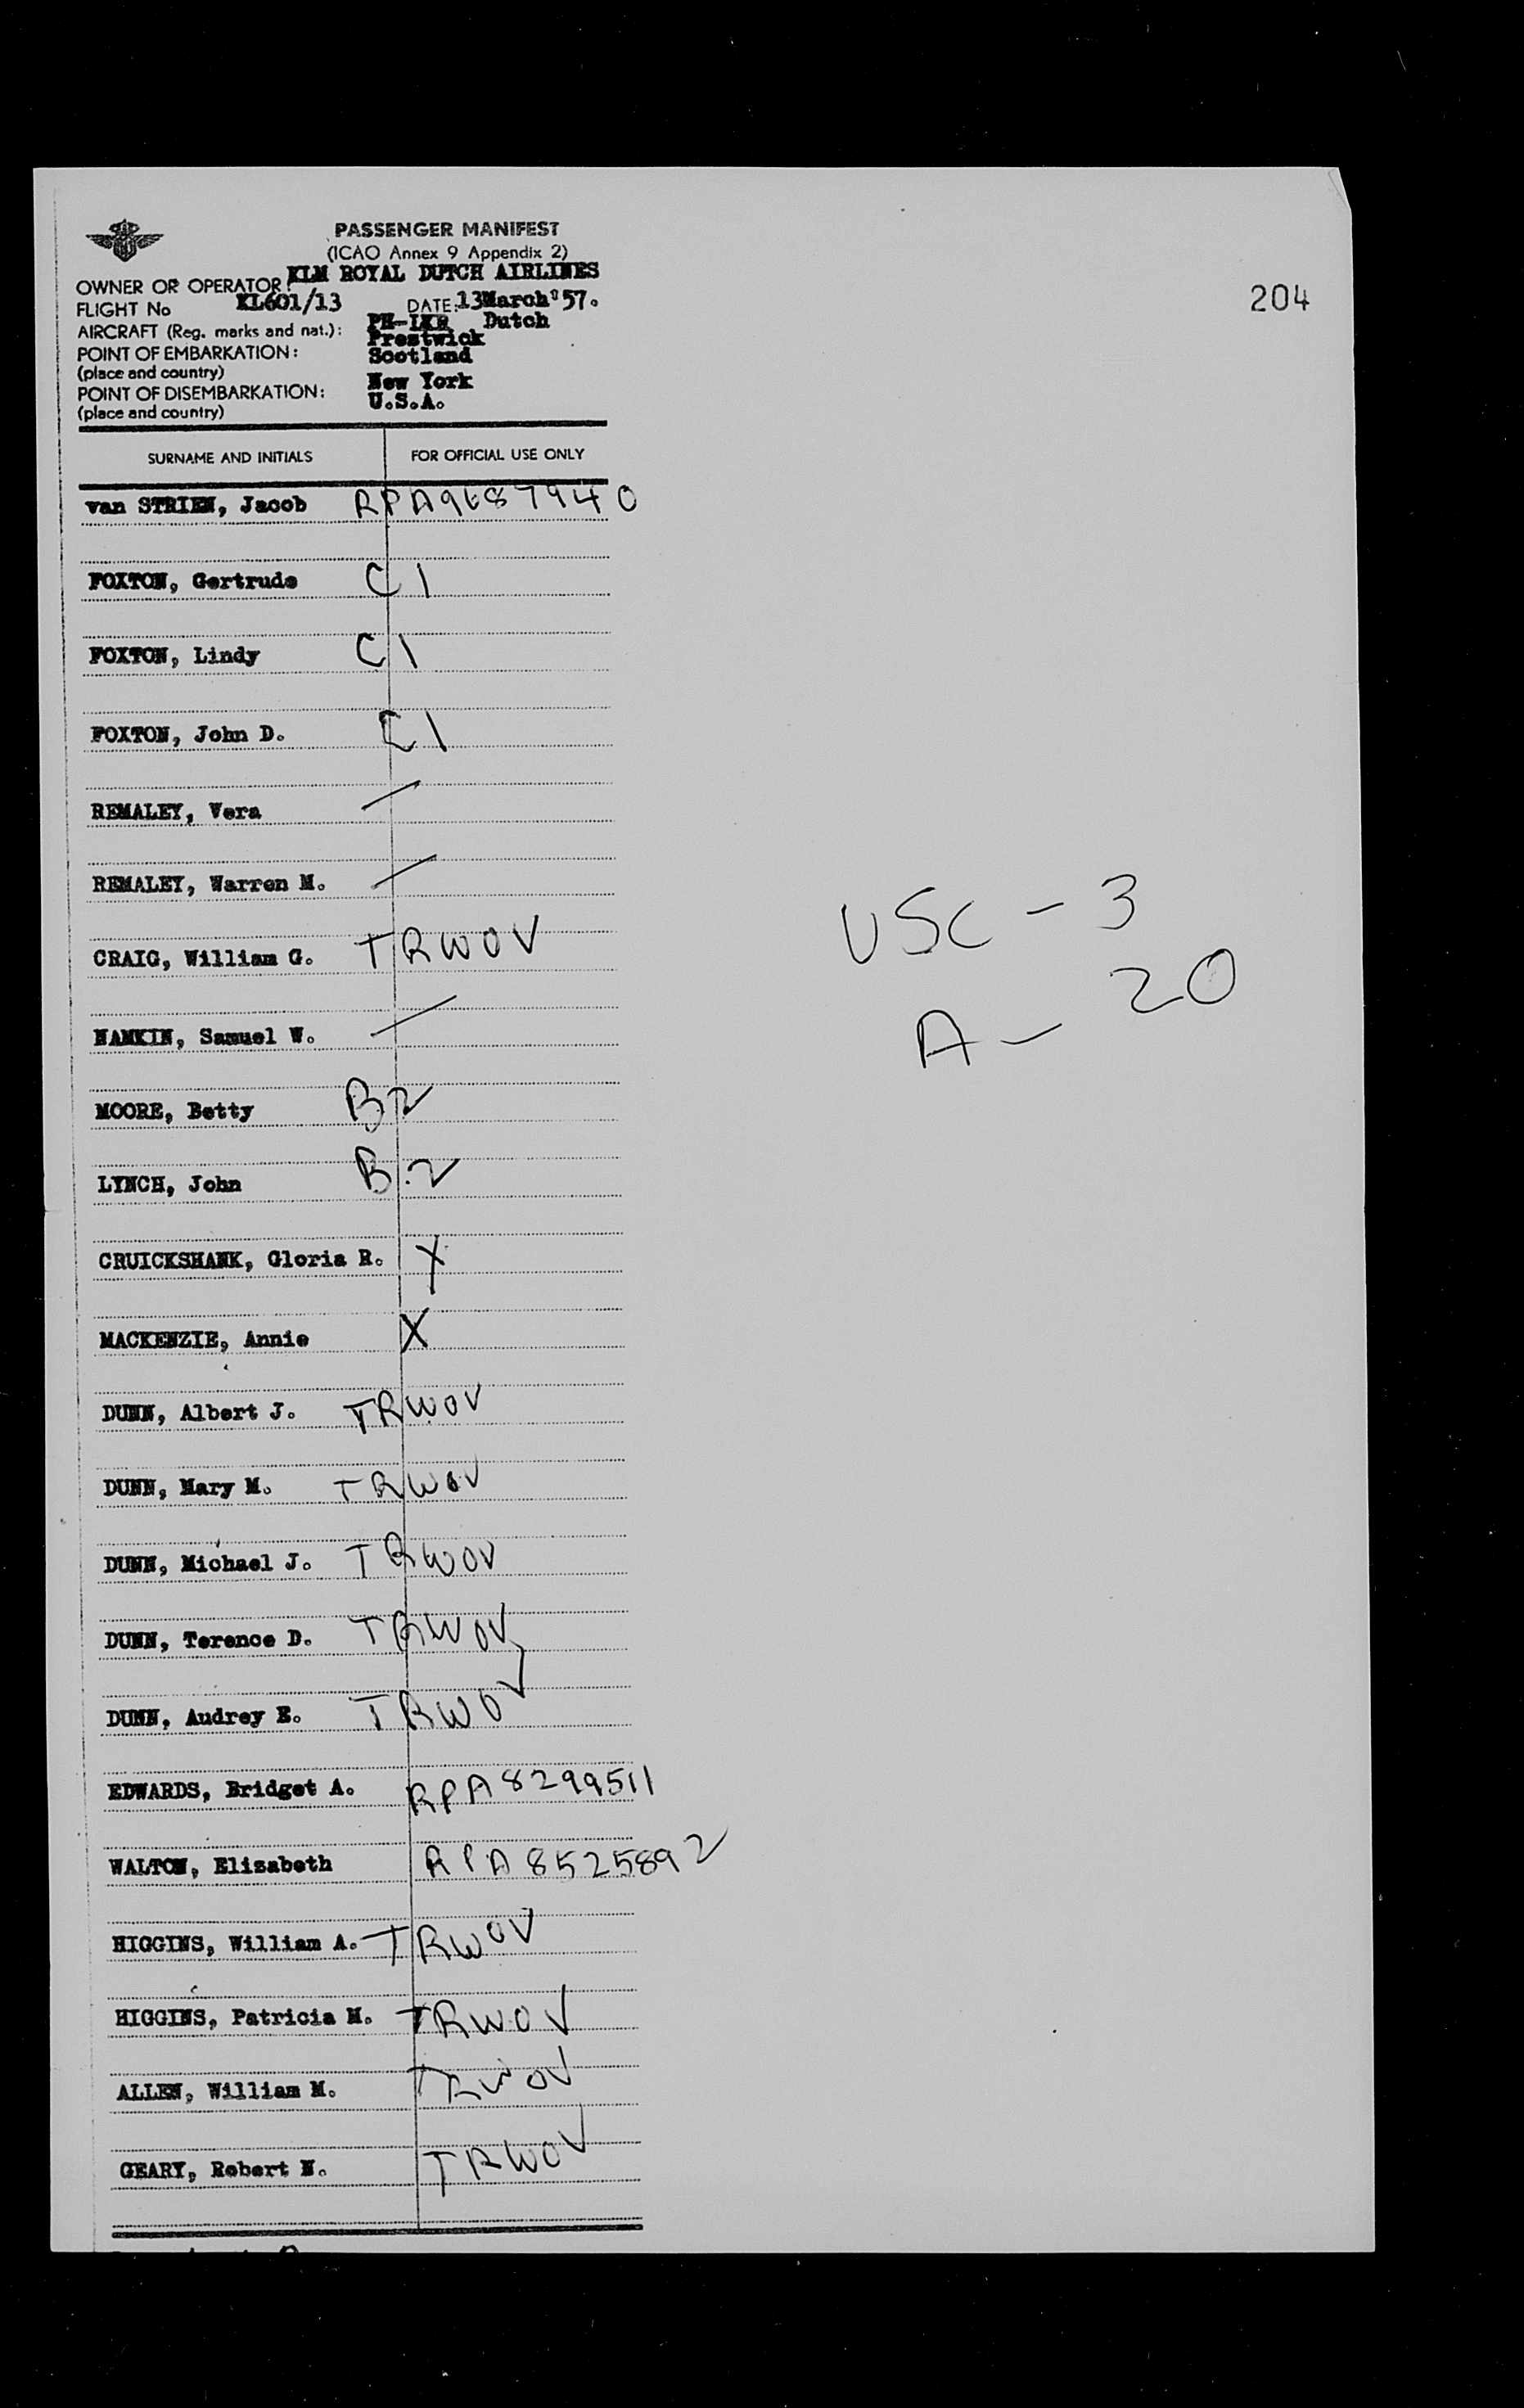 PASSENGER MANIFEST
(ICAO Annex 9 Appendix 2)
OWNER OR OPERATOR: KLM ROYAL DUTCH AIRLINES
FLIGHT No KL601/13 DATE: 13March'57.
AIRCRAFT (Reg. marks and nat.): Dutch
POINT OF EMBARKATION: Prestwick
(place and country) Scotland
POINT OF DISEMBARKATION: New York
(place and country) U.S.A.
204
SURNAME AND INITIALS FOR OFFICIAL USE ONLY
van STRIEN, Jacob RPA9687940
FOXTON, Gertrude C1
FOXTON, Lindy C1
FOXTON, John D. C1
REMALEY, Vera
REMALEY, Warren M.
CRAIG, William G. TRWOV
USC - 3
A - 20
Samuel W.
MOORE, Betty B2
LYNCH, John B.2
CRUICKSHANK, Gloria R. X
MACKENZIE, Annie X
DUNN, Albert J. TRWOV
DUNN, Mary M. TRWOV
DUNN, Michael J. TRWOV
DUNN, Terence D. TRWOV
DUNN, Audrey E. TRWOV
EDWARDS, Bridget A. RPA8299511
WALTON, Elizabeth RPA8525892
HIGGINS, William A. TRWOV
HIGGINS, Patricia M. TRWOV
ALLEN, William M. TRWOV
GEARY, Robert N. TRWOV